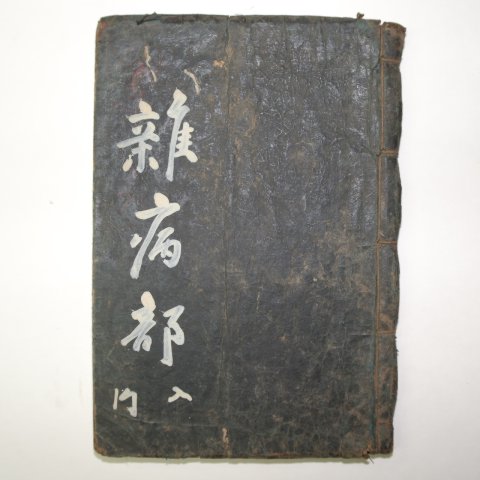 雜病部
入門